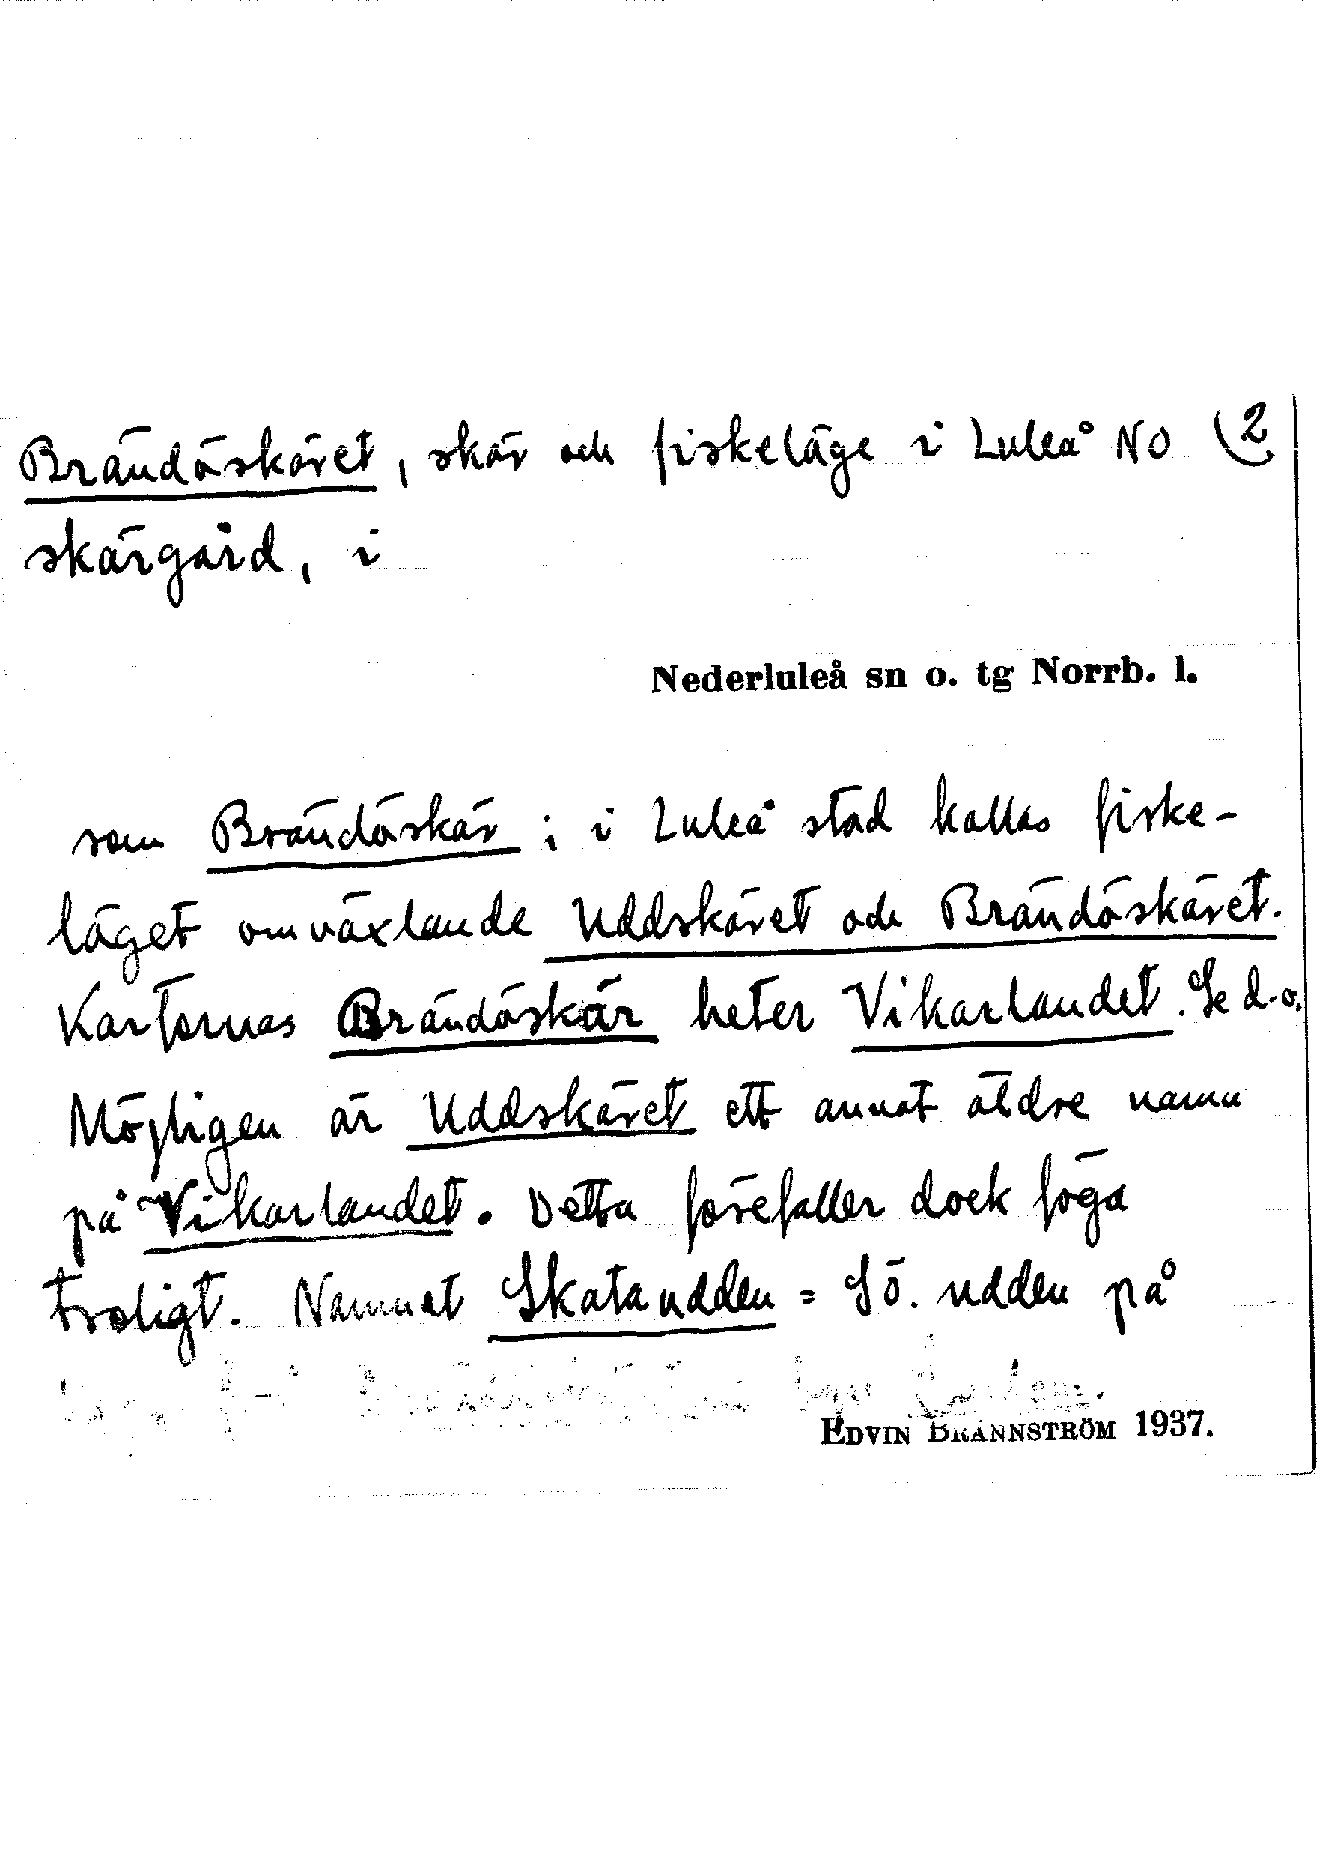 Brändöskäret, skär och fiskeläge i Luleå NO (2
skärgård, i
Nederluleå sn o. tg Norrb. l.
som Brändöskär; i Luleå stad kallas fiske-
läget omväxlande Uddskäret och Brändöskäret.
Kartornas Brändöskär heter Vikarlandet. Se d.o.
Möjligen är Uddskäret ett annat äldre namn
på Vikarlandet. Detta förefaller dock föga
troligt. Namnet Skataudden = Sö. udden på
EDVIN BRÄNNSTRÖM 1937.